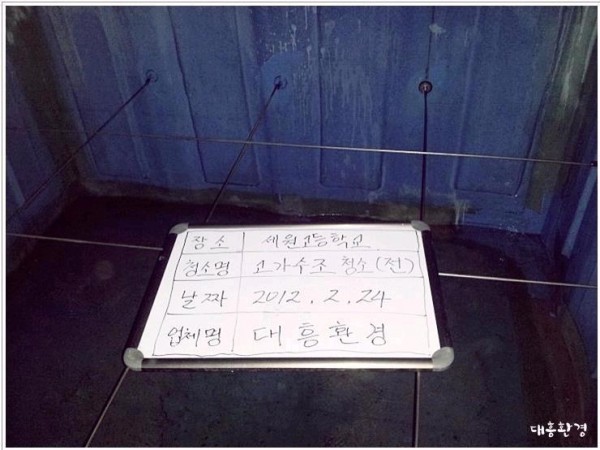 장소 세원고등학교
청소명 고가수조 청소(전)
날짜 2012. 2. 24
업체명 대흥환경
대흥환경